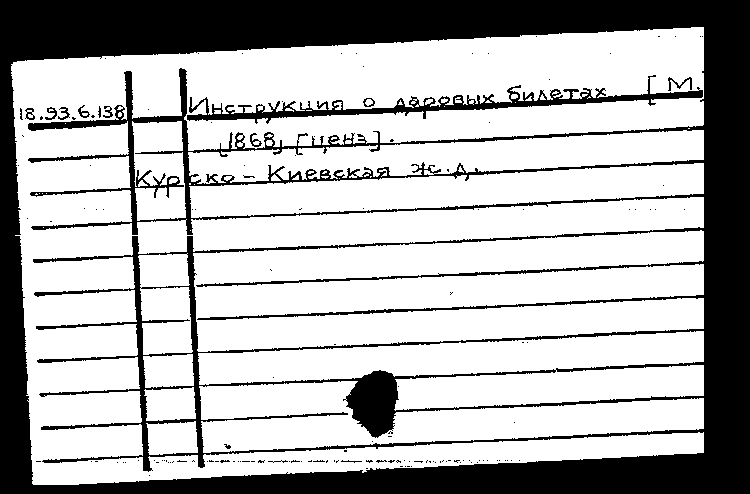 18.93.6.138 Инструкция о даровых билетах [М.,
1868, [ценз].
Курско-Киевская ж.д.